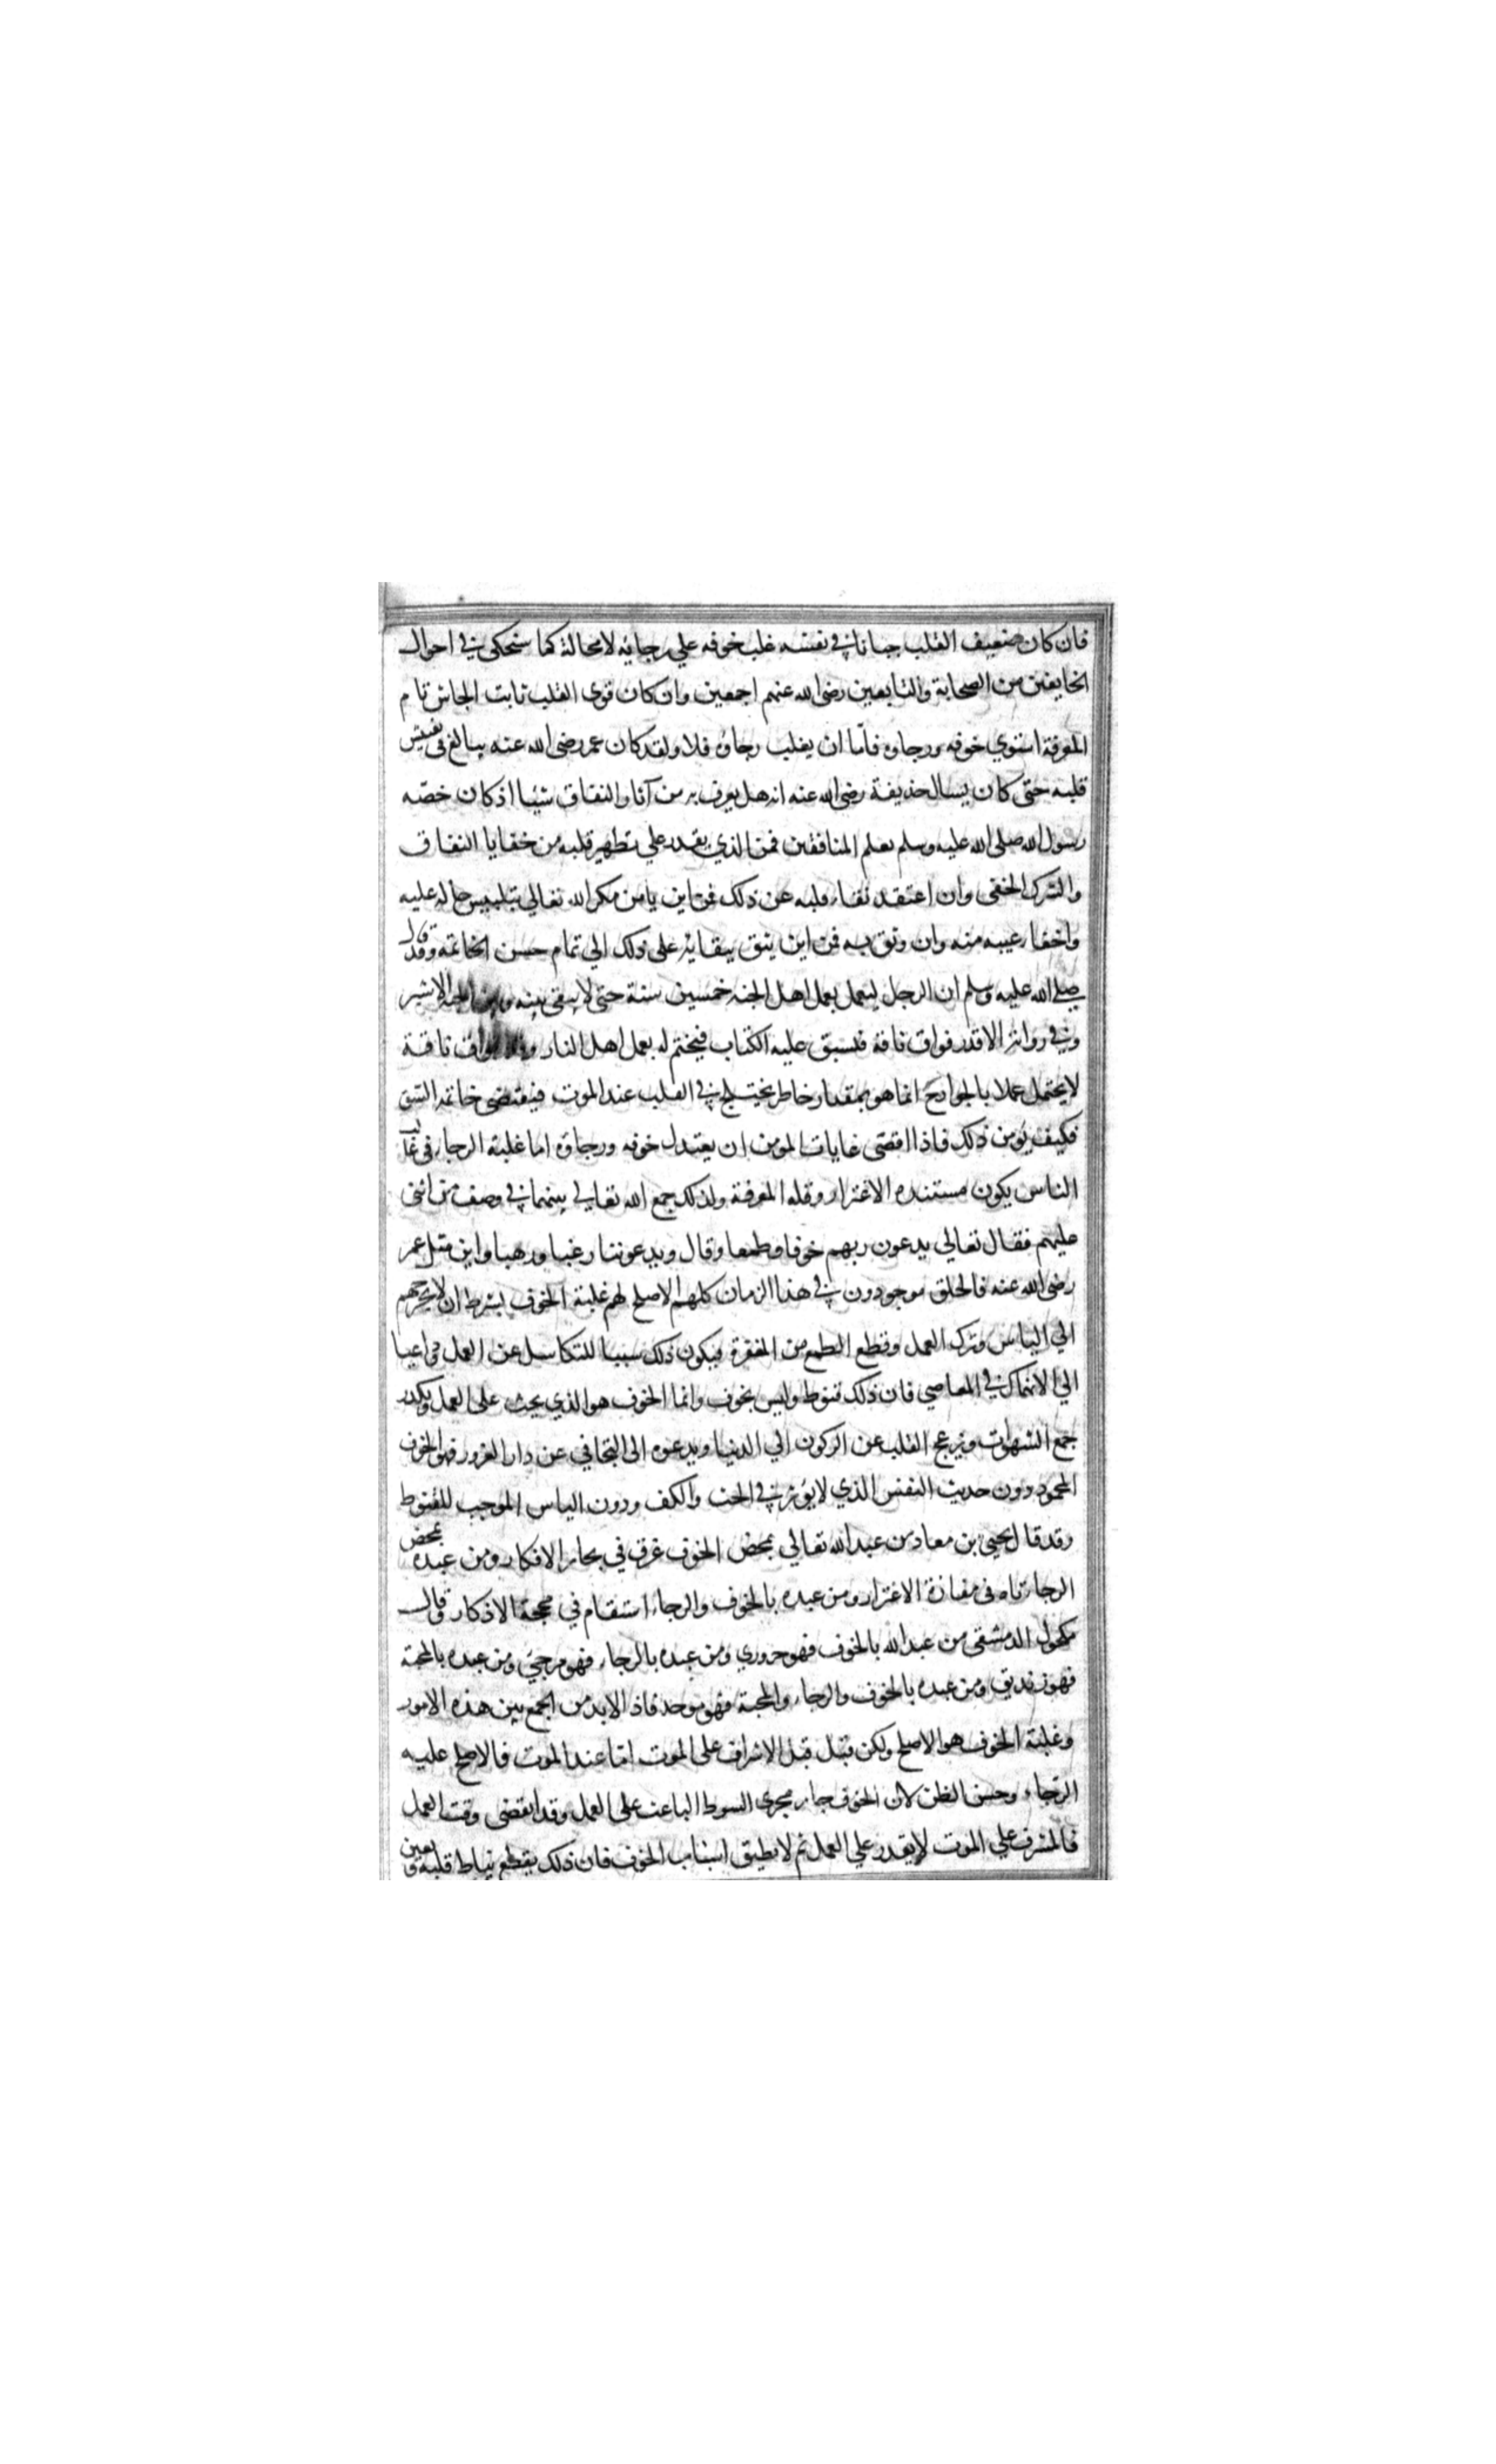 فان كان ضعيف القلب جبانا في نفسه غلب خوفه علي رجائه لامحالة كما سنحكى في احوال
الخايفين من الصحابة والتابعين رضى الله عنهم اجمعين وان كان قوى القلب ثابت الجاش تام
المعرفة استوي خوفه ورجاوه فاما ان يغلب رجاوه فلا ولقد كان عمر رضى الله عنه يبالغ فى تفتيش
قلبه حتى كان يسال حذيفة رضى الله عنه انه هل يعرف به من آثار النفاق شيا اذ كان خصه
رسول الله صلى الله عليه وسلم بعلم المنافقين فمن الذي يقدر علي تطهير قلبه من خفايا النفاق
والشرك الخفى وان اعتقد نقاء قلبه عن ذلك فمن اين يامن مكر الله تعالي بتلبيس حاله عليه
واخفاء عيبه منه وان وثق به فمن اين يثق ببقائه على ذلك الي تمام حسن الخاتمه وقد قال
صلى الله عليه وسلم ان الرجل ليعمل بعمل اهل الجنه خمسين سنة حتى لا يبقى بينه وبين الجنه الا شبر
وفي رواية الا قدر فواق ناقة فيسبق عليه الكتاب فيختم له بعمل اهل النار فواق ناقة
لا يحتمل عملا بالجوارح انما هو بمقدار خاطر يختلج في القلب عند الموت فيقتضى خاتمه السق
فكيف يؤمن ذلك فاذا اقصى غايات المومن ان يعتدل خوفه ورجاؤه اما غلبة الرجاء فى غالب
الناس يكون مستنده الاغترار وقله المعرفة ولذلك جمع الله تعالي بينهما في وصف من اثنى
عليهم فقال تعالي يدعون ربهم خوفا وطمعا وقال ويدعوننا رغبا ورهبا واين مثل عمر
رضى الله عنه فالخلق موجودون في هذا الزمان كلهم الاصلح لهم غلبة الخوف بشرط ان لا يخرجهم
الي الياس وترك العمل وقطع الطمع من المغفرة فيكون ذلك سببا للتكاسل عن العمل وداعيا
الي الانهماك في المعاصي فان ذلك قنوط وليس بخوف وانما الخوف هو الذي يحث على العمل ويكدر
جمع الشهوات ويزعج القلب عن الركون الي الدنيا ويدعوه الى التجافي عن دار الغرور فهو الخوف
المحمود دون حديث النفس الذي لا يؤثر في الحث والكف ودون الياس الموجب للقنوط
وقد قال يحيى بن معاد من عبد الله تعالي بمحض الخوف غرق في بحار الافكار ومن عبده بمحض
الرجاء تاه فى مفازة الاغترار ومن عبده بالخوف والرجاء استقام في محجة الاذكار وقال
مكحول الدمشقى من عبد الله بالخوف فهو حروري ومن عبده بالرجاء فهو مرجئ ومن عبده بالمحبة
فهو زنديق ومن عبده بالخوف والرجاء والمحبة فهو موحد فاذا لابد من الجمع بين هذه الامور
وغلبة الخوف هو الاصلح ولكن قبل قبل الاشراف على الموت اما عند الموت فالاصلح عليه
الرجاء وحسن الظن لان الخوف جار مجرى السوط الباعث على العمل وقد انقضى وقت العمل
فالمشرف علي الموت لا يقدر علي العمل ثم لا يطيق اسباب الخوف فان ذلك يقطع نياط قلبه ويعين